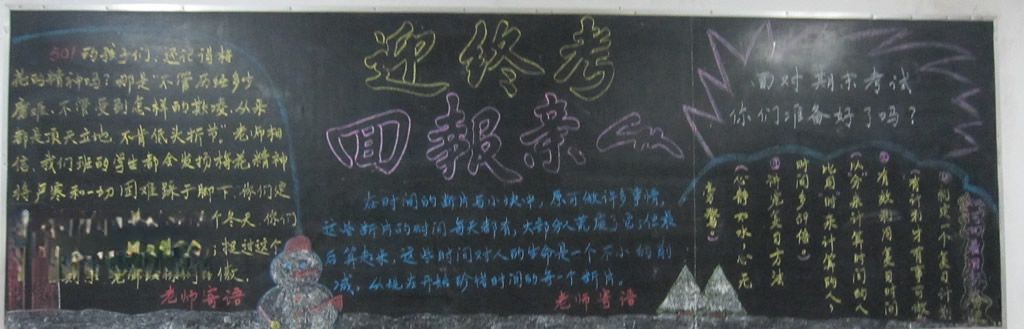 迎终考
回報亲
501的孩子们,还记请梅
花的精神吗?那是"不管历经多少
磨难,不管受到怎样的欺凌,从来
都是顶天立地,不肯低头折节"老师相
信,我们班的学生都会发扬梅花精神
将严寒和一切困难踩于脚下,你们定
个冬天 你们
挺过这个
老师寄语
在时间的断片与小块中,原可做许多事情,
这些断片的时间每天都有,大部分人荒废了它,但最
后算起来,这些时间对人的生命是一个不小的削
减,从现在开始珍惜时间的每一个断片。
老师寄语
面对期末考试
你们准备好了吗?
①制定一个复习计划
(有计划才有事可做)
②有效利用复习时间
(以分来计算时间的人
比用"时"来计算的人,
时间多59倍)
③讲究复习方法
(心静如水,心无
旁骛)